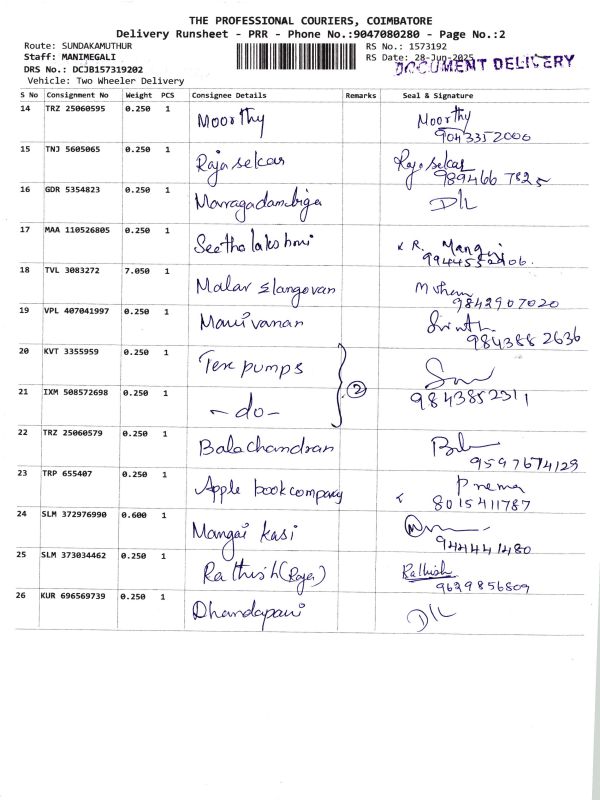 THE PROFESSIONAL COURIERS, COIMBATORE
Delivery Runsheet - PRR - Phone No.:9047080280 - Page No.:2
Route: SUNDAKAMUTHUR RS No.: 1573192
Staff: MANIMEGALI RS Date: 28-Jun-2025
DOCUMENT DELIVERY
DRS No.: DCJB157319202
Vehicle: Two Wheeler Delivery
S No Consignment No Weight PCS Consignee Details Remarks Seal & Signature
14 TRZ 25060595 0.250 1 Moorthy Moorthy
9043352000
15 TNJ 5605065 0.250 1 Rajasekar Rajasekar
989466 7825
16 GDR 5354823 0.250 1 Marragadambiga D/L
17 MAA 110526805 0.250 1 Seethalakshmi R.
18 TVL 3083272 7.050 1 Malar Elangovan
9842907020
19 VPL 407041997 0.250 1 Manivanan
984388 2636
20 KVT 3355959 0.250 1 Texpumps
21 IXM 508572698 0.250 1 -do- 2 9843852311
22 TRZ 25060579 0.250 1 Balachandran
9597674129
23 TRP 655407 0.250 1 Apple book company Prema
8015411787
24 SLM 372976990 0.600 1 Mangai Kasi
944441480
25 SLM 373034462 0.250 1 Rathish (Raja) Rathish
9629856809
26 KUR 696569739 0.250 1 Dhandapani D/L